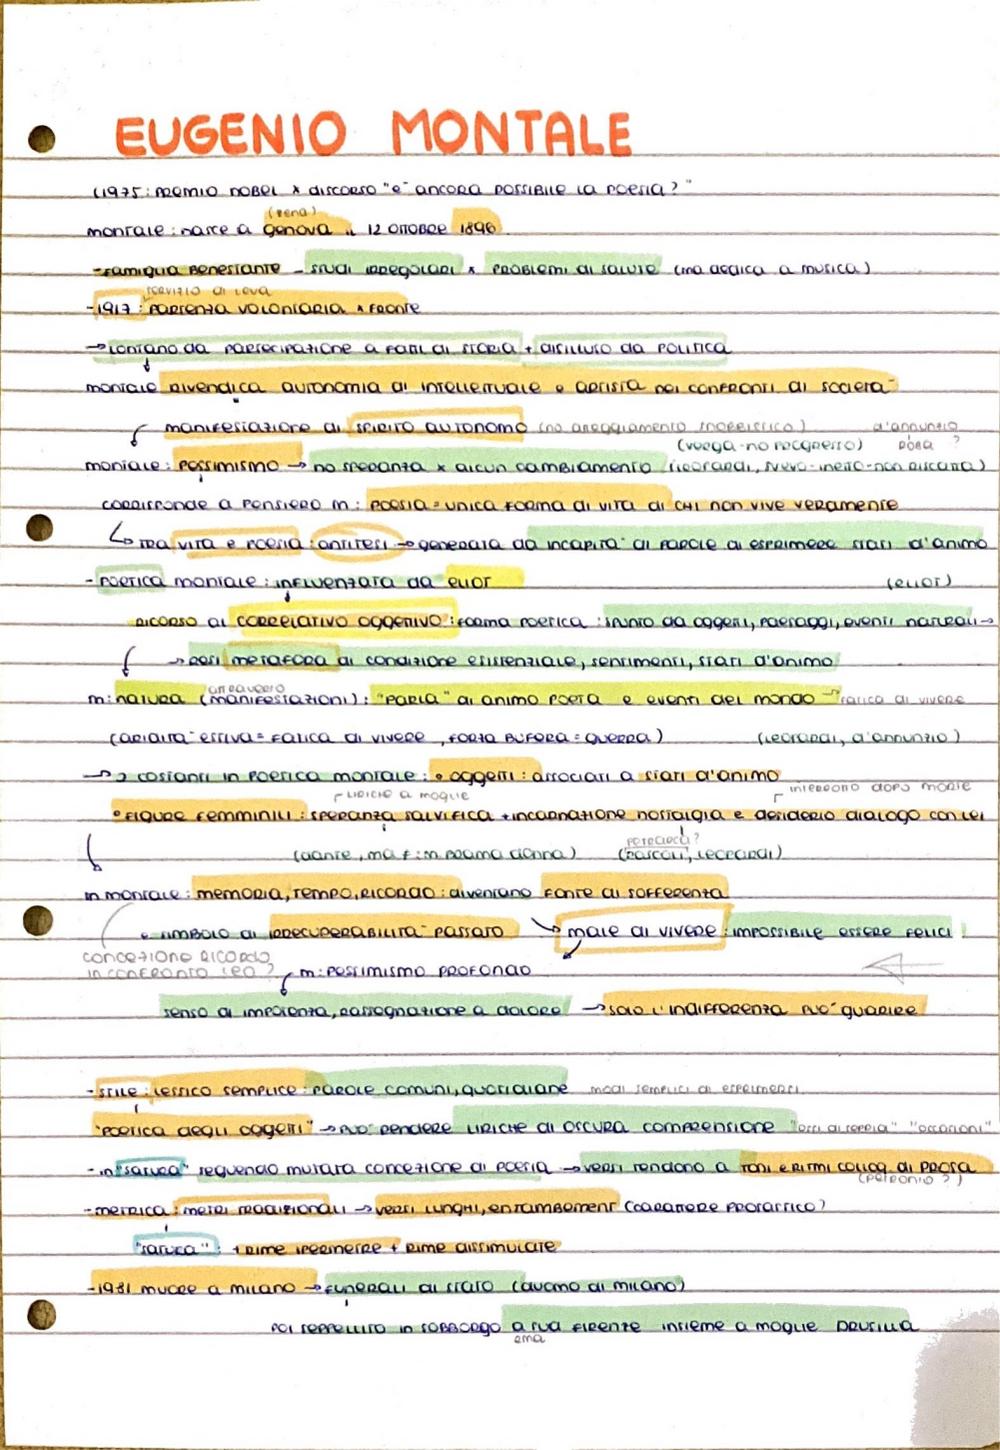 EUGENIO MONTALE
(1975: PREMIO NOBEL x DISCORSO "e' ANCORA POSSIBILE LA POESIA?"
(rena)
montale: nasce a genova il 12 OTTOBRE 1896
-FAMIGLIA BENESTANTE - STUDI IRREGOLARI x PROBLEMI di SALUTE (ma dedica a musica)
SERVIZIO di LEVA
-1917: PARTENZA VOLONTARIA x FRONTE
→ LONTANO da PARTECIPAZIONE a FATTI di STORIA + DISILLUSO da POLITICA
montale RIVENDICA AUTONOMIA di INTELLETTUALE e ARTISTA nei CONFRONTI di SOCIETA'
MANIFESTAZIONE di SPIRITO AUTONOMO (no atteggiamento snobbistico) d'annunzio
(verga-no progresso) DORA ?
montale: PESSIMISMO → no SPERANZA x alcun CAMBIAMENTO (leopardi, svevo-inetto-non riscatto)
CORRISPONDE a PENSIERO m: POESIA = UNICA FORMA di VITA di CHI non VIVE VERAMENTE
↳ TRA VITA e POESIA: ANTITESI → generata da INCAPITA' di PAROLE di ESPRIMERE STATI d'ANIMO
- POETICA montale: INFLUENZATA da ELIOT (ELIOT)
RICORSO al CORRELATIVO OGGETTIVO: FORMA POETICA: SPUNTO da OGGETTI, PAESAGGI, EVENTI NATURALI →
→ resi METAFORA di CONDIZIONE ESISTENZIALE, SENTIMENTI, STATI d'ANIMO
attraverso
m: NATURA (MANIFESTAZIONI): "PARLA" di ANIMO POETA e EVENTI del MONDO → fatica di vivere
(ARIDITA' ESTIVA = FATICA di VIVERE, FORZA BUFERA = GUERRA) (leopardi, d'annunzio)
→ 2 COSTANTI in POETICA montale: • OGGETTI: ASSOCIATI a STATI d'ANIMO
LIRICHE a moglie INTERRONO DOPO MORTE
• FIGURE FEMMINILI: SPERANZA SALVIFICA + INCARNAZIONE NOSTALGIA e DESIDERIO DIALOGO con LEI
PETRARCA?
(dante, ma f: m BRAMA donna) (PASCOLI, LEOPARDI)
in montale: MEMORIA, TEMPO, RICORDO: diventano FONTE di SOFFERENZA
e SIMBOLO di IRRECUPERABILITA' PASSATO → MALE di VIVERE: IMPOSSIBILE ESSERE FELICI
CONCEZIONE RICORDO
IN CONFRONTO LEO ? m: PESSIMISMO PROFONDO
SENSO di IMPOTENZA, RASSEGNAZIONE a DOLORE → SOLO L'INDIFFERENZA PUO' GUARIRE
- STILE: LESSICO SEMPLICE: PAROLE COMUNI, QUOTIDIANE modi semplici di esprimersi
"POETICA degli OGGETTI" → PUO' RENDERE LIRICHE di OSCURA COMPRENSIONE "ossi di seppia" "occasioni"
- in "SATURA" seguendo MUTATA CONCEZIONE di POESIA → VERSI TENDONO a TONI e RITMI COLLOQ. di PROSA
(PETRONIO ?)
- METRICA: METRI TRADIZIONALI → VERSI LUNGHI, ENJAMBEMENT (CARATTERE PROSASTICO)
"SATURA": + RIME IPERMETRE + RIME DISSIMULATE
- 1981 MUORE a MILANO → FUNERALI di STATO (duomo di MILANO)
POI SEPPELLITO in SOBBORGO a SUD FIRENZE INSIEME a MOGLIE DRUSILLA
ema